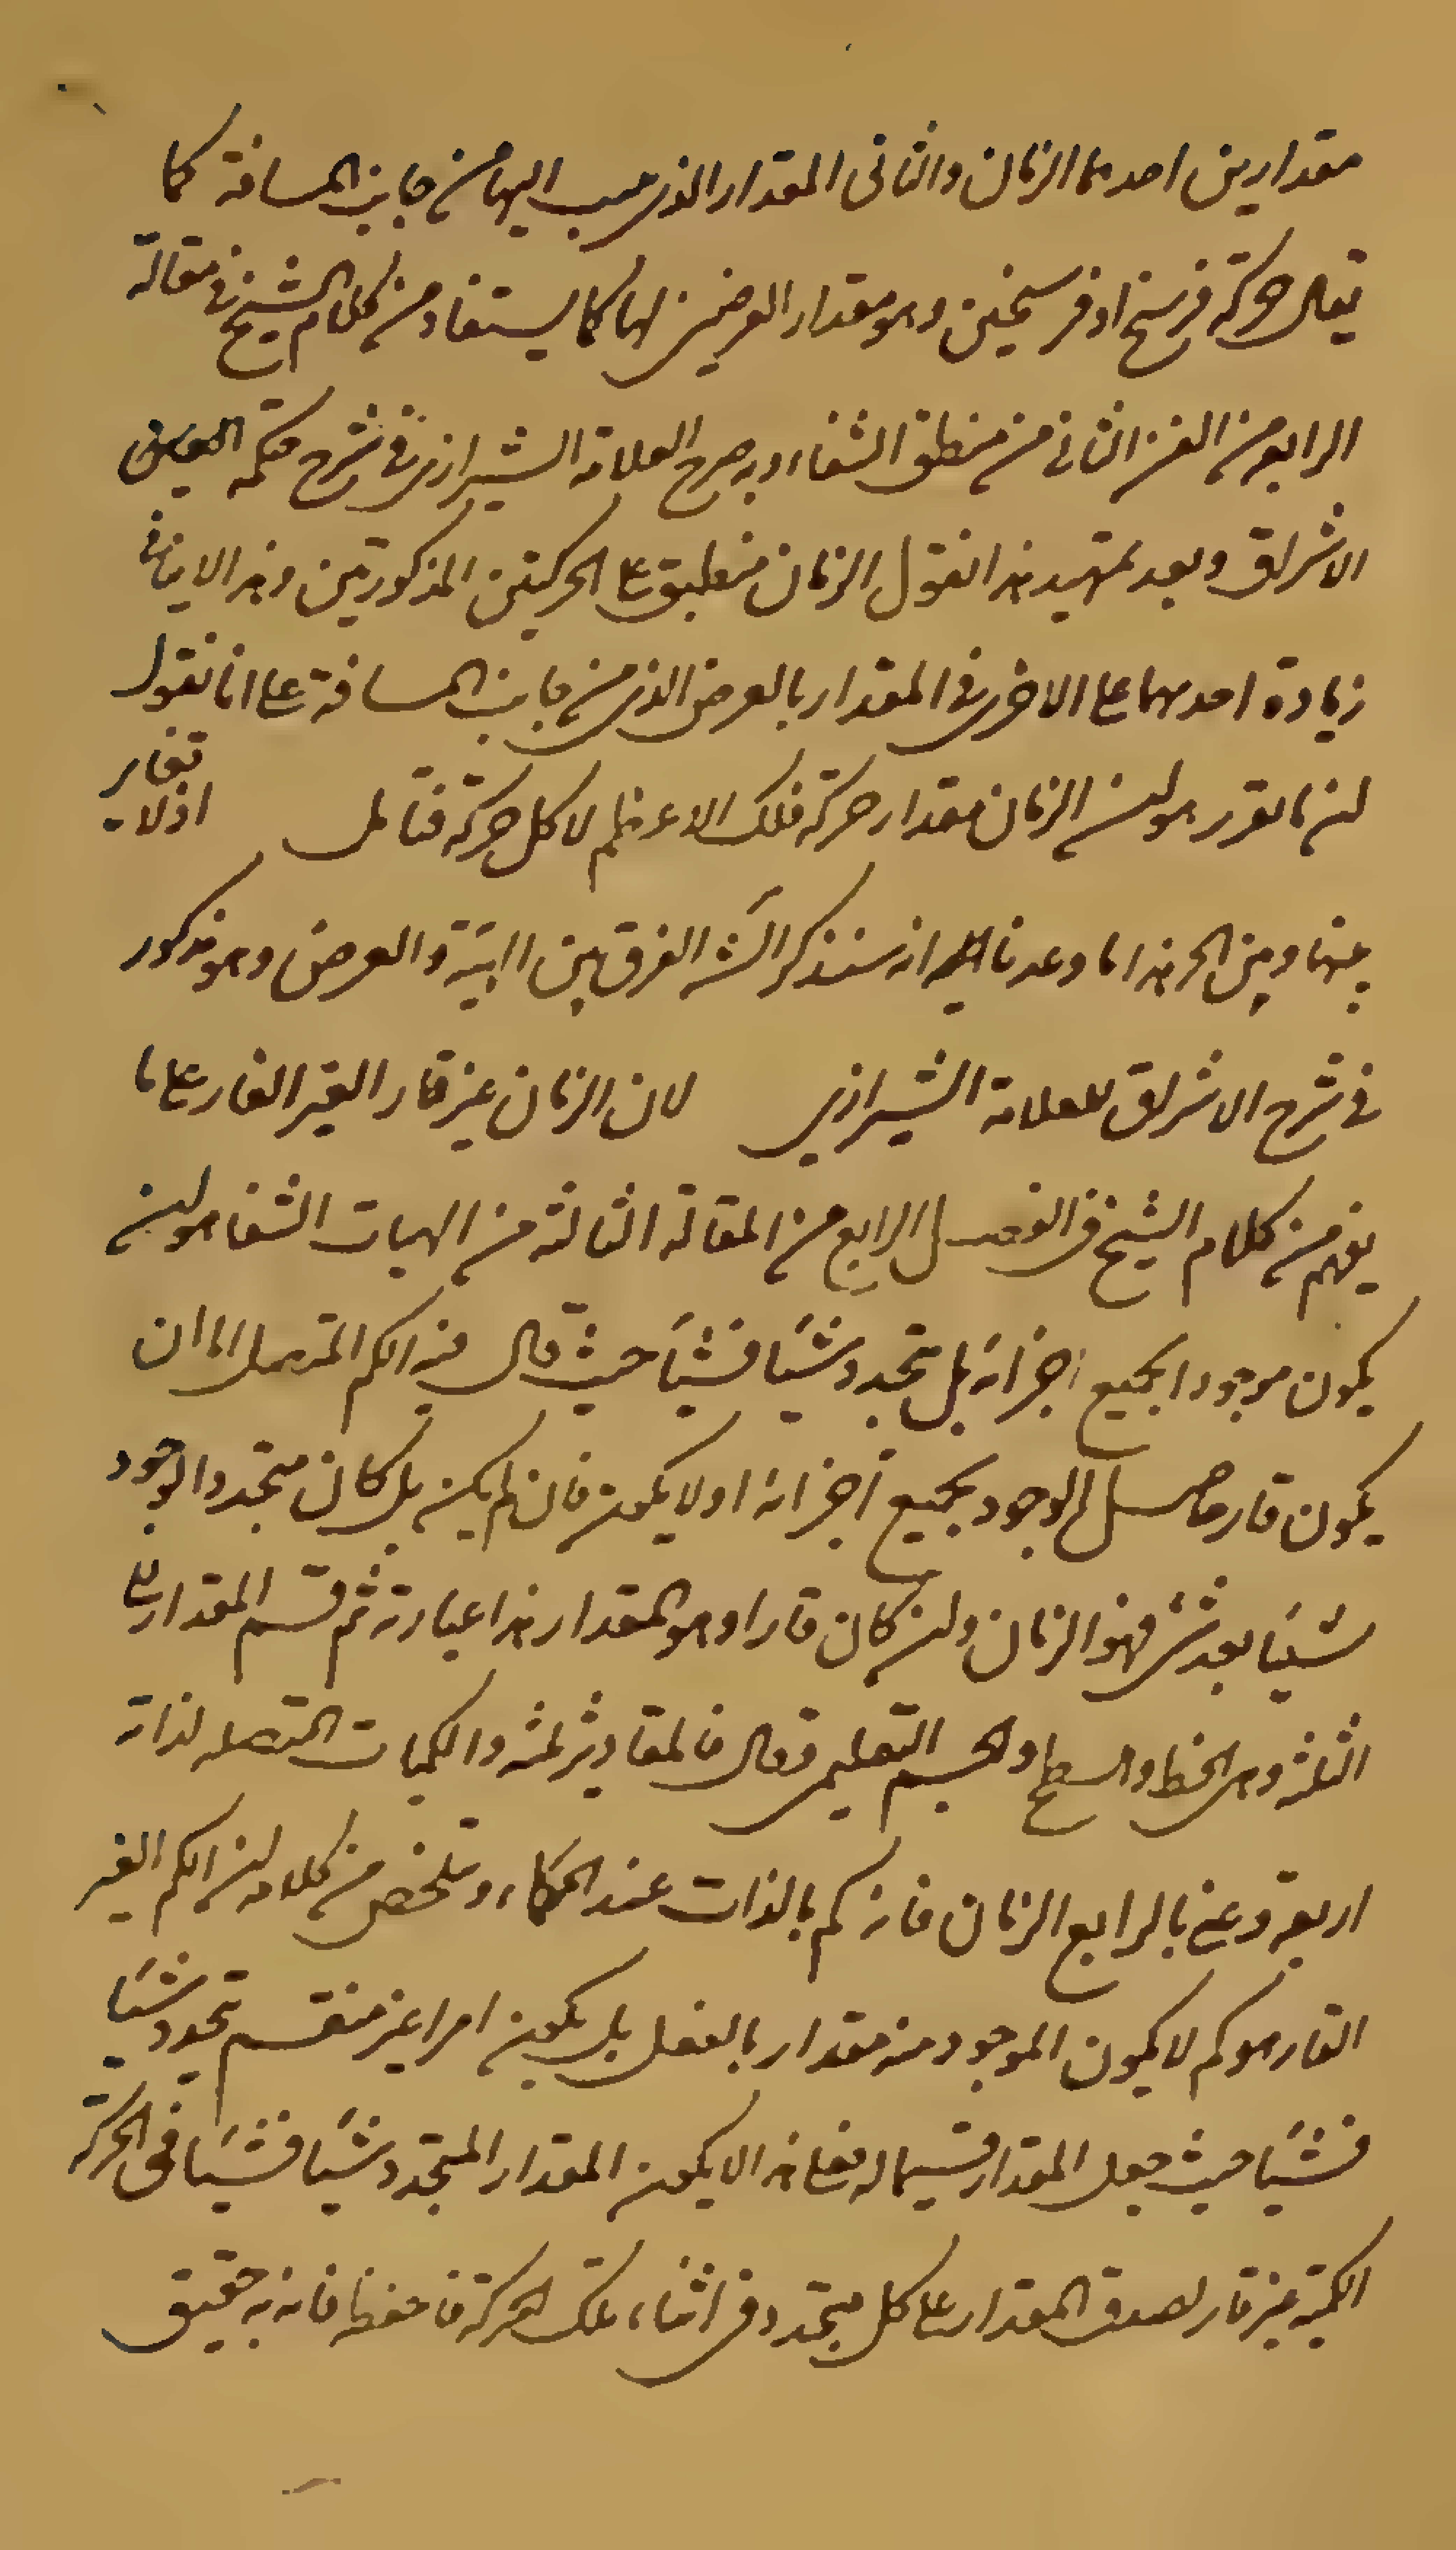 مقدارين احدهما الزمان والثانى المقدار الذى يسب اليها من جانب المسافة كما
يقال حركة فرسخ او فرسخين وهو مقدار العرضى لها كما يستفاد من كلام الشيخ فى مقالة
الرابع من الفن الثانى من منطق الشفاء وبه صرح العلامة الشيرازى فى شرح حكمة العين
الاشراق وبعد تمهيد هذا نقول الزمان منطبق على الحركتين المذكورتين وهذا لاينافى
زيادة احديهما على الاخرى فى المقدار بالعرض الذى من جانب المسافة على انا نقول
ان ما تقرر هو ان الزمان مقدار حركة فلك الاعظم لا كل حركة فتامل اذ لا تغاير
بينها وبين الحر هذا ما وعدنا اليه انه سنذكر انشه الفرق بين الهيئة والعرض وهو مذكور
فى شرح الاشراق للعلامة الشيرازى لان الزمان غير قار الغير القار على ما
يفهم من كلام الشيخ فى الفصل الرابع من المقالة الثالثة من الهيات الشفا هو ان
يكون موجودا بجميع اجزائه بل تجدد شيئا فشيئا حيث قال فيه الكم المتصل اما ان
يكون قار حاصل الوجود بجميع اجزائه اولا يكون فان لم يكن بل كان متجدد الوجود
شيئا بعد شئ فهو الزمان وان كان قارا وهو المقدار هذا عبارته ثم قسم المقدار على
الثلثة وهى الخط والسطح والجسم التعليمى وقال فالمقادير ثلثة والكميات المتصله لذاته
اربعة وعنى بالرابع الزمان فانه كم بالذات عند الحكاء وتلخص من كلامه ان الكم الغير
القار هو كم لا يكون الموجود منه مقدار بالفعل بل يكون امرا غير منقسم تجدد شيئا
فشيئا حيث جعل المقدار قسيما له فعلى هذا لا يكون المقدار المتجدد شيئا فشيئا فى الحركة
الكمية غير قار لصدق المقدار على كل متجدد فى اثناء تلك الحركة فاحفظ فانه به حقيق